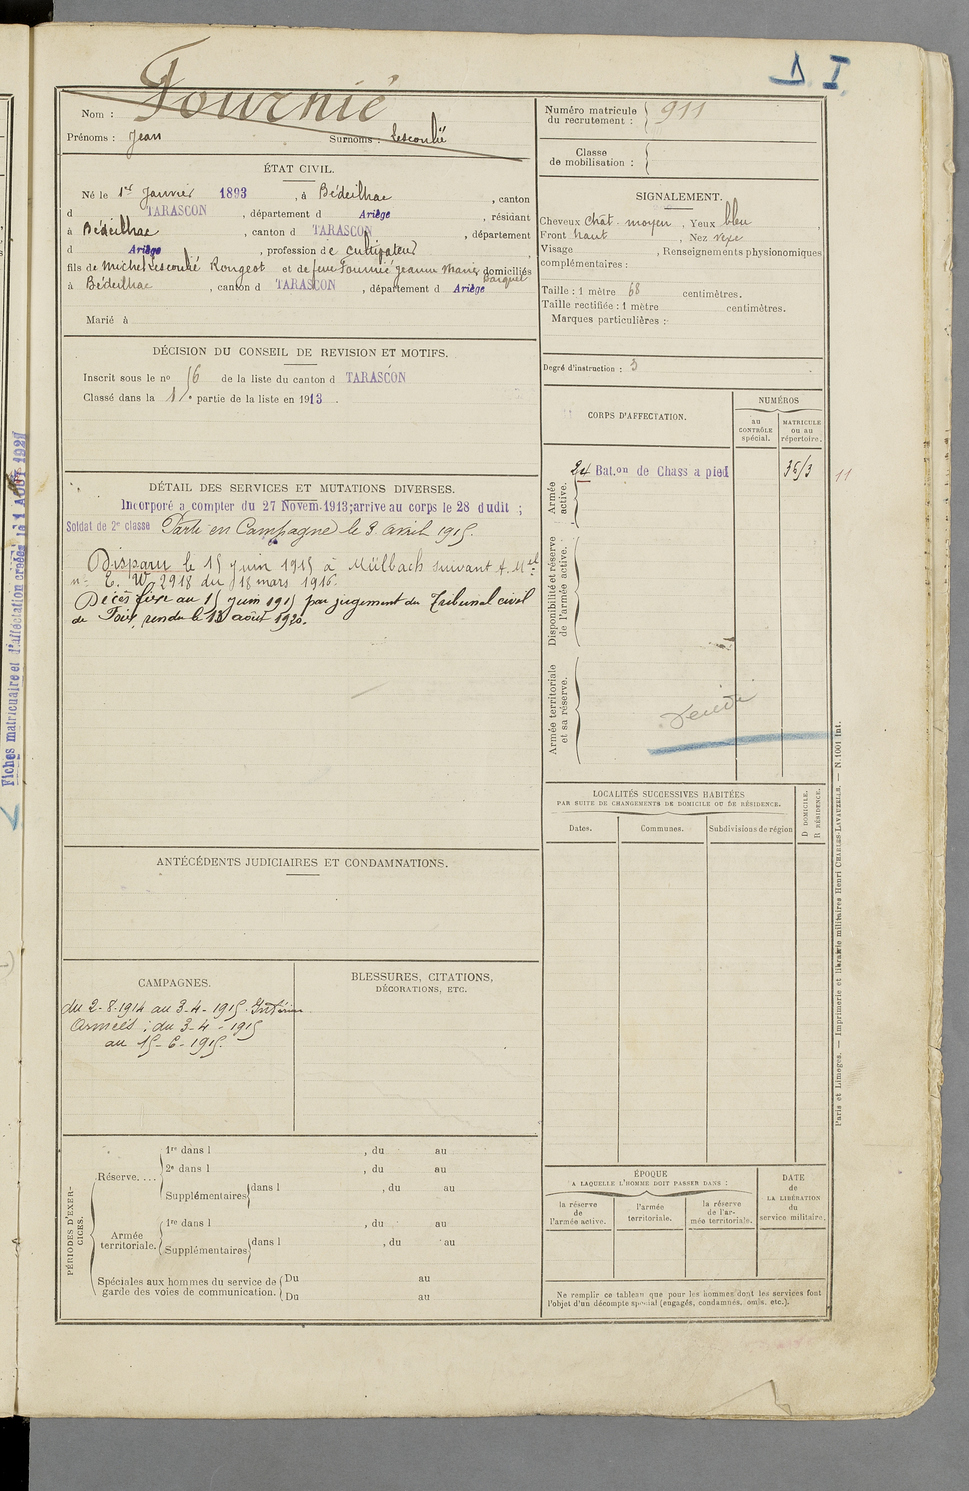 D. I.
Nom : Fournié
Prénoms : Jean Surnoms : Lescoulié
ÉTAT CIVIL.
Né le 1er Janvier 1893, à Bédeilhac, canton
d TARASCON, département d Ariège, résidant
à Bédeilhac, canton d TARASCON, département
d Ariège, profession de cultivateur
fils de Michel Lescoulié Rougeot et de feue Fournié Jeanne Marie domiciliés
à Bédeilhac, canton d TARASCON, département d Ariège
Marié à
DÉCISION DU CONSEIL DE REVISION ET MOTIFS.
Inscrit sous le no 16 de la liste du canton d TARASCON
Classé dans la 1re partie de la liste en 1913.
DÉTAIL DES SERVICES ET MUTATIONS DIVERSES.
Incorporé a compter du 27 Novem. 1913; arrive au corps le 28 dudit ;
Soldat de 2e classe Parti en Campagne le 3 avril 1915.
Disparu le 15 juin 1915 à Mülbach suivant A. Mel
no E. W. 2918 du 18 mars 1916.
Décès fixé au 15 juin 1915 par jugement du Tribunal civil
de Foix, rendu le 13 août 1920.
ANTÉCÉDENTS JUDICIAIRES ET CONDAMNATIONS.
CAMPAGNES.
du 2-8-1914 au 3-4-1915. Intérieur
Armées : du 3-4-1915
au 15-6-1915.
BLESSURES, CITATIONS,
DÉCORATIONS, ETC.
PÉRIODES D'EXERCICES.
Réserve....
1re dans l , du au
2e dans l , du au
Supplémentaires dans l , du au
Armée
territoriale.
1re dans l , du au
Supplémentaires dans l , du au
Spéciales aux hommes du service de
garde des voies de communication.
Du au
Du au
Numéro matricule
du recrutement : 911
Classe
de mobilisation :
SIGNALEMENT.
Cheveux chât. moyen, Yeux bleu,
Front haut, Nez vexe
Visage , Renseignements physionomiques
complémentaires :
Taille : 1 mètre 68 centimètres.
Taille rectifiée : 1 mètre centimètres.
Marques particulières :
Degré d'instruction : 3
CORPS D'AFFECTATION.
NUMÉROS
au
CONTRÔLE
spécial.
MATRICULE
ou au
répertoire.
Armée
active.
24 Bat.on de Chass a pied 3613
11
Disponibilité et réserve
de l'armée active.
Armée territoriale
et sa réserve.
LOCALITÉS SUCCESSIVES HABITÉES
PAR SUITE DE CHANGEMENTS DE DOMICILE OU DE RÉSIDENCE.
Dates. Communes. Subdivisions de région
D DOMICILE.
R RÉSIDENCE.
ÉPOQUE
A LAQUELLE L'HOMME DOIT PASSER DANS :
la réserve
de
l'armée active.
l'armée
territoriale.
la réserve
de l'ar-
mée territoriale.
DATE
de
LA LIBÉRATION
du
service militaire.
Ne remplir ce tableau que pour les hommes dont les services font
l'objet d'un décompte spécial (engagés, condamnés, omis, etc.).
Paris et Limoges. — Imprimerie et librairie militaires Henri CHARLES-LAVAUZELLE. — N. 1001 Int.
Fiches matriculaire et d'affectation créées le 1 AOÛT 1921